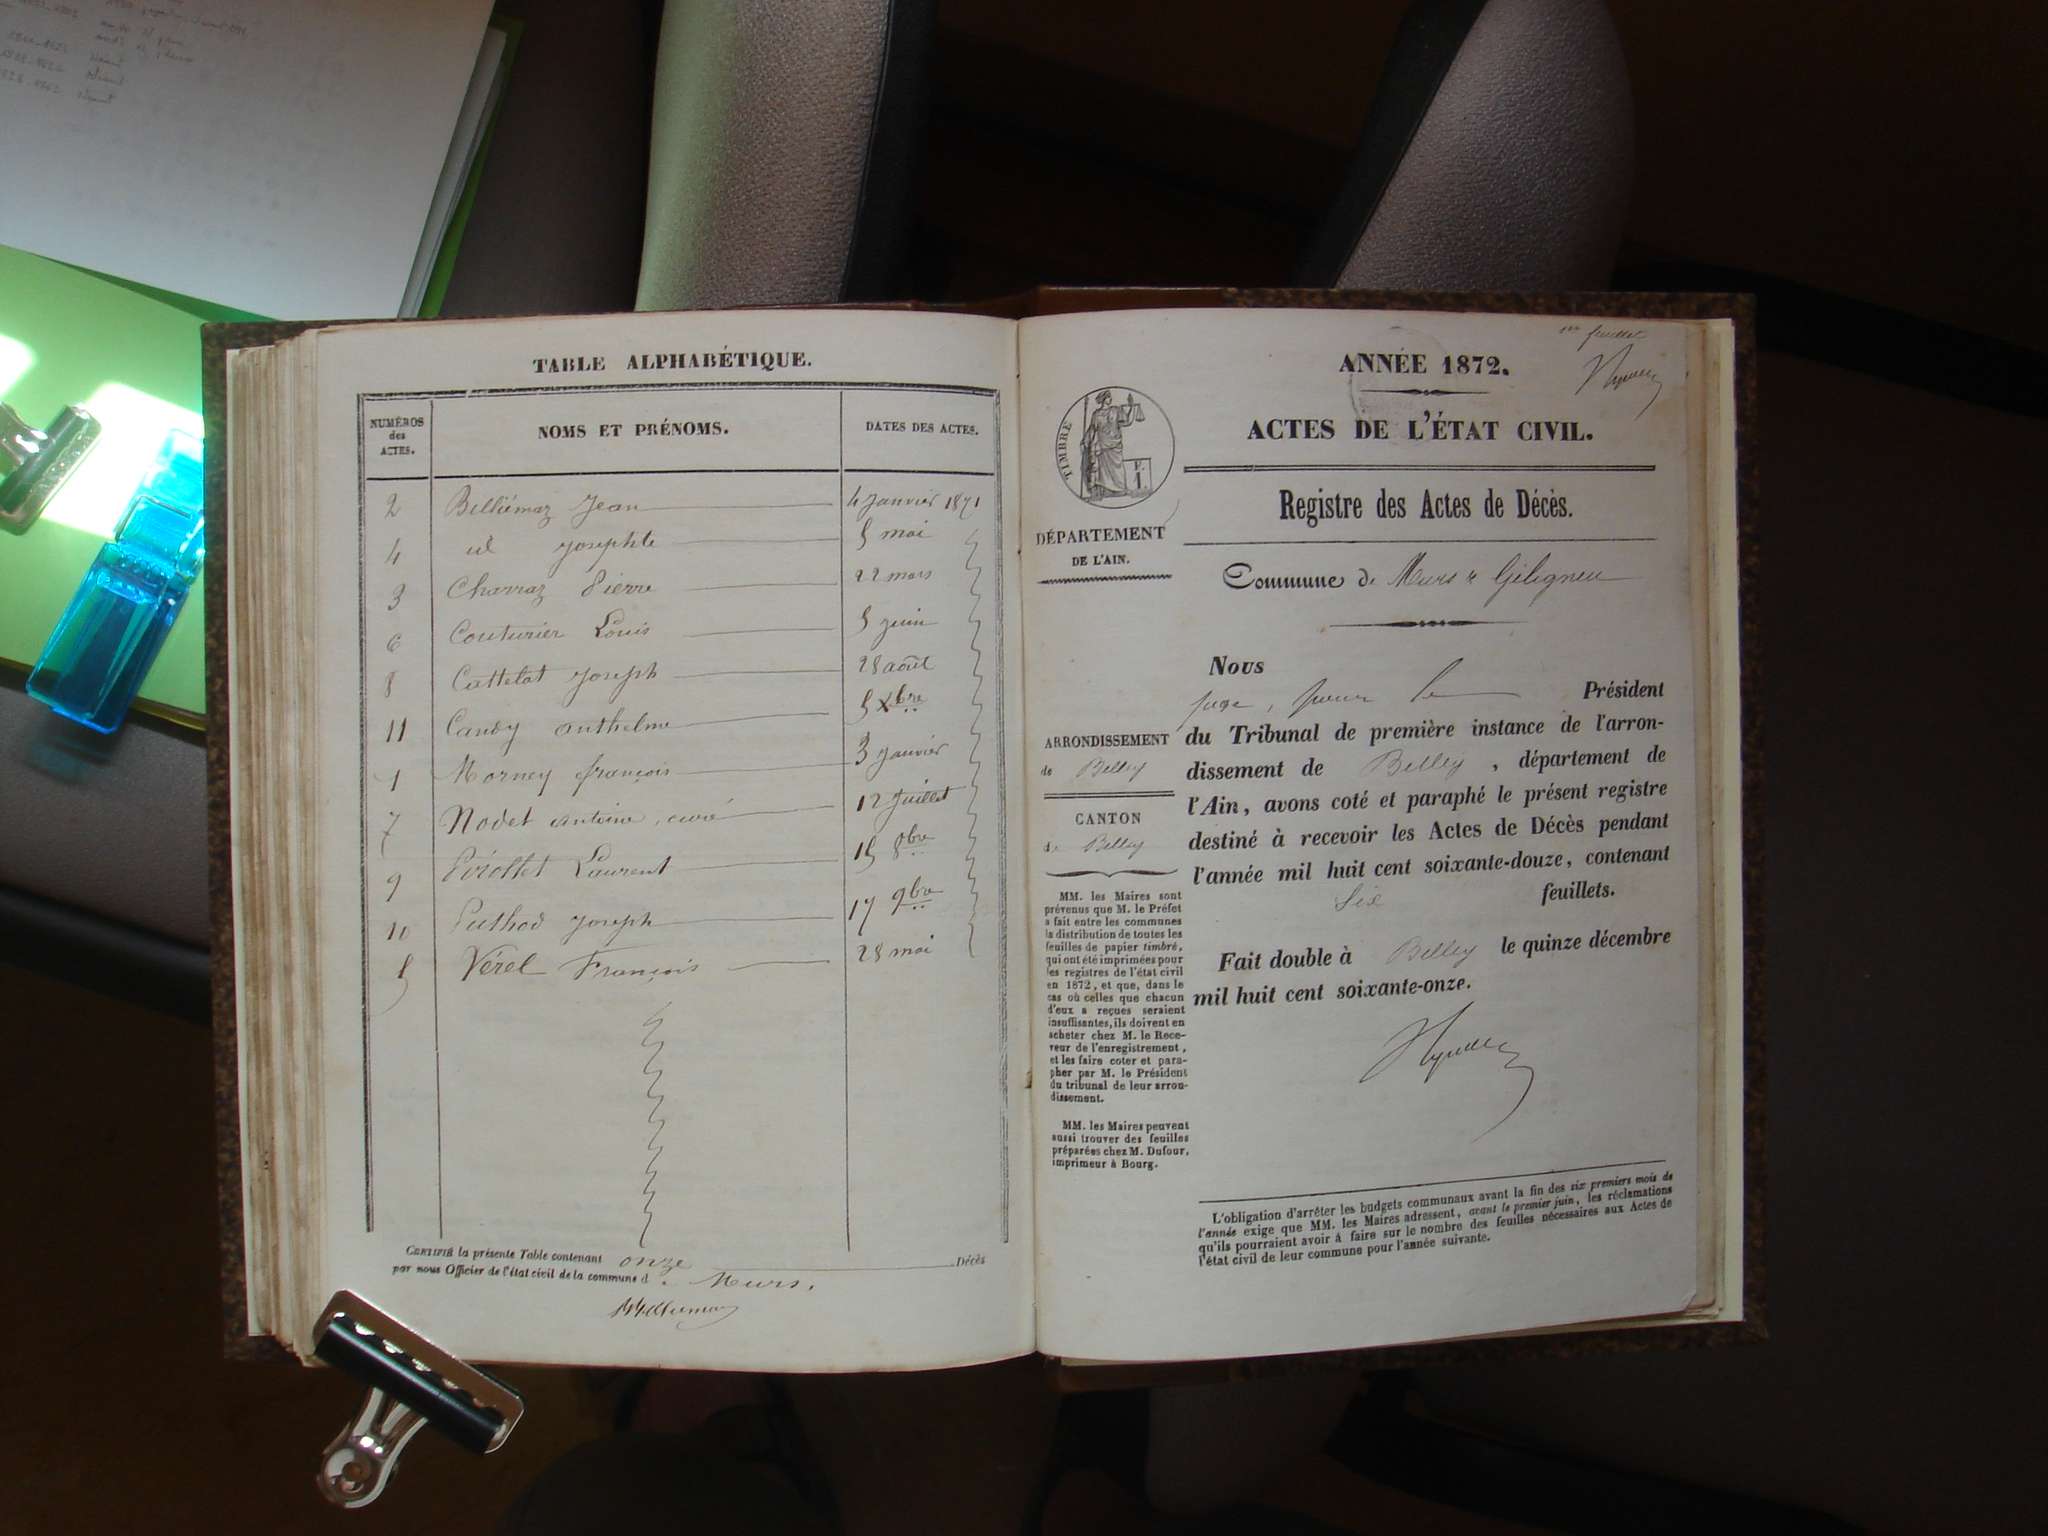 TABLE ALPHABÉTIQUE.
NUMÉROS des ACTES. NOMS ET PRÉNOMS. DATES DES ACTES.
2 Belliémaz Jean 4 Janvier 1871
4 id Josephte 5 mai
3 Charraz Pierre 22 mars
6 Couturier Louis 5 juin
8 Cattelat Joseph 28 août
11 Candy anthelme 5 Xbre
1 Morney françois 3 Janvier
7 Nodet Antoine, curé 12 Juillet
9 Laurent 15 8bre
10 Puthod Joseph 17 9bre
5 Vérel François 28 mai
CERTIFIÉ la présente Table contenant onze Décès
par nous Officier de l'état civil de la commune d Murs.
1er feuillet
ANNÉE 1872.
ACTES DE L'ÉTAT CIVIL.
TIMBRE
Registre des Actes de Décès.
DÉPARTEMENT
DE L'AIN.
Commune de Murs & Géligneu
Nous
juge, pour le Président
du Tribunal de première instance de l'arron-
dissement de Belley, département de
l'Ain, avons coté et paraphé le présent registre
destiné à recevoir les Actes de Décès pendant
l'année mil huit cent soixante-douze, contenant
Six feuillets.
Fait double à Belley le quinze décembre
mil huit cent soixante-onze.
ARRONDISSEMENT
de Belley
CANTON
de Belley
MM. les Maires sont
prévenus que M. le Préfet
a fait entre les communes
la distribution de toutes les
feuilles de papier timbré,
qui ont été imprimées pour
les registres de l'état civil
en 1872, et que, dans le
cas où celles que chacun
d'eux a reçues seraient
insuffisantes, ils doivent en
acheter chez M. le Rece-
veur de l'enregistrement,
et les faire coter et para-
pher par M. le Président
du tribunal de leur arron-
dissement.
MM. les Maires peuvent
aussi trouver des feuilles
préparées chez M. Dufour,
imprimeur à Bourg.
L'obligation d'arrêter les budgets communaux avant la fin des six premiers mois de
l'année exige que MM. les Maires adressent, avant le premier juin, les réclamations
qu'ils pourraient avoir à faire sur le nombre des feuilles nécessaires aux Actes de
l'état civil de leur commune pour l'année suivante.